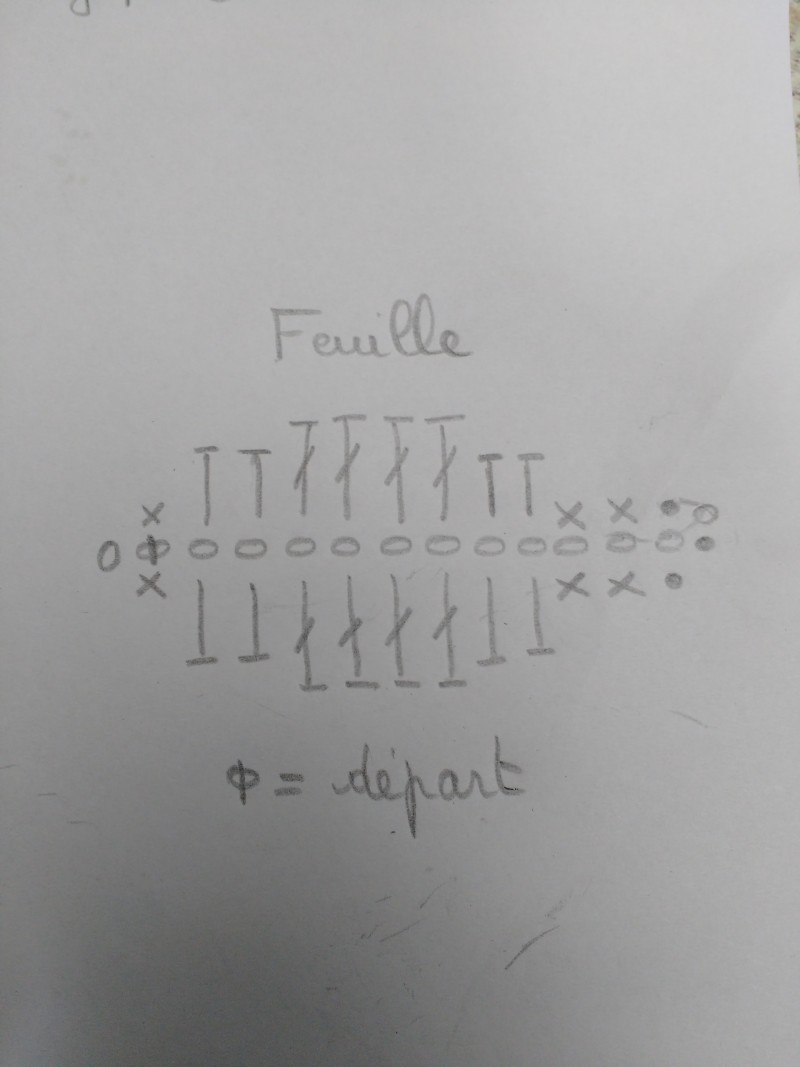 Feuille
φ = départ